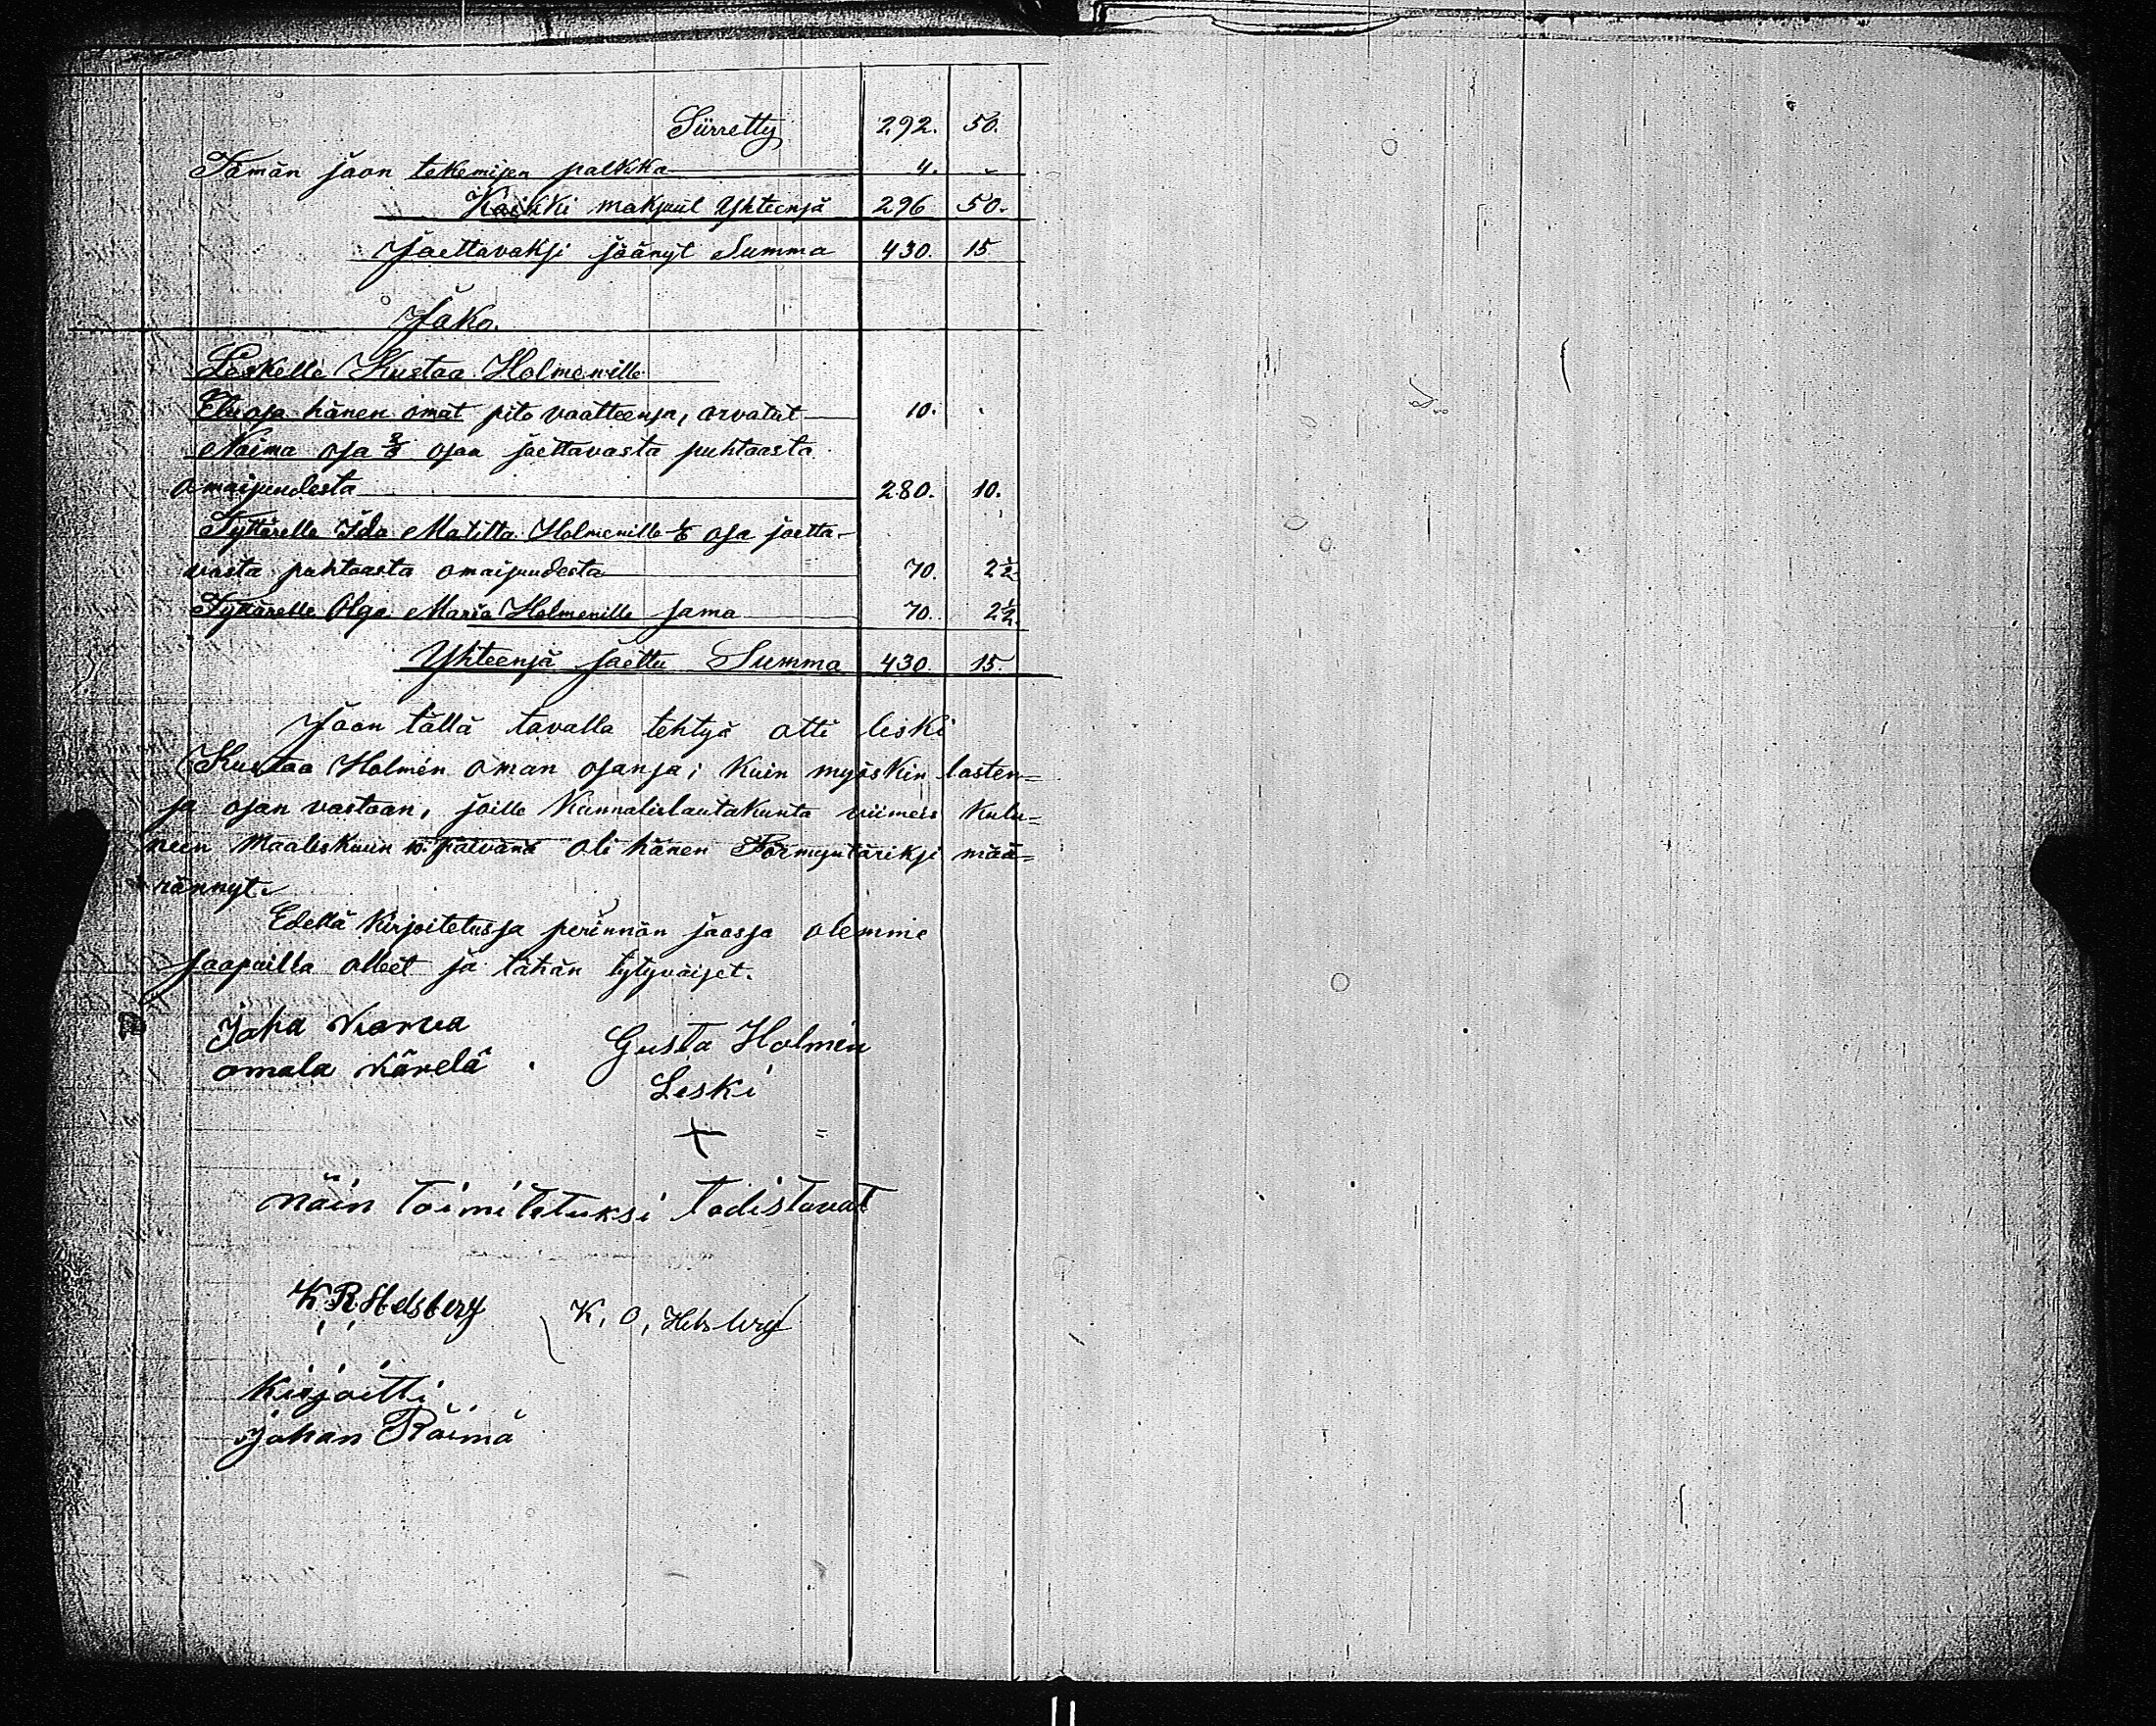 Siirretty 292. 50.
Tämän jaon tekemisen palkka 4. -
Kaikki maksuut Yhteensä 296 50.
Jaettavaksi jäänyt Summa 430. 15
Jako.
Leskelle Kustaa Holmenille
Etu osa hänen omat pito vaatteensa, arvatut 10. .
Naima osa 2/3 osan jaettavasta puhtaasta
omaisuudesta 280. 10.
Tyttärelle Ida Matilta Holmenille 1/6 osa jaetta-
vasta puhtaasta omaisuudesta 70. 2 1/2
Tyttärelle Olga Maria Holmenille sama 70. 2 1/2
Yhteensä jaettu Summa 430. 15.
Jaon tällä tavalla tehtyä otti leski
Kustaa Holmén oman osansa; kuin myöskin lasten=
sa osan vastaan, joille Kunnalislautakunta viimeis kulu=
neen Maaliskuun 10. päivänä oli hänen Förmyntäriksi mää=
rännyt.
Edellä kirjoitetussa perinnön jaossa olemme
saapuilla olleet ja tähän tytyväiset.
Juha
omala Kärelä . Gusta Holmén
Leski
+
näin toimitetuksi todistavat
K. R. Helsberg K, O, Helsberg
Kirjoitti
Johan Räimä